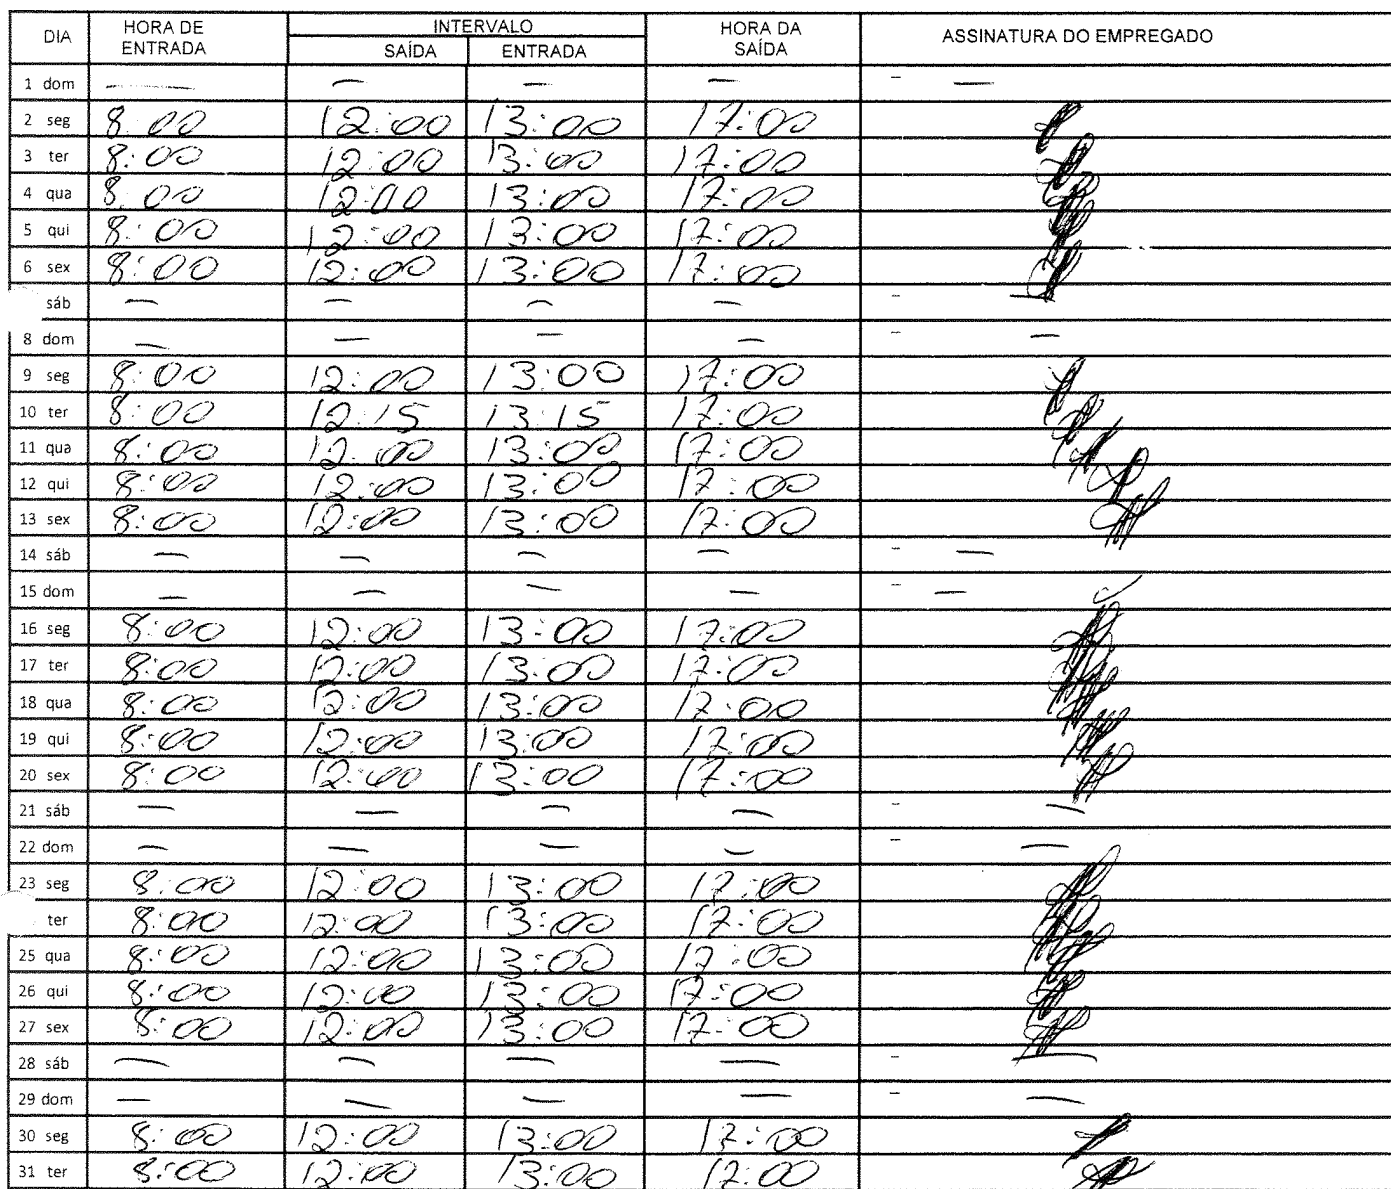 DIA HORA DE ENTRADA INTERVALO HORA DA SAÍDA ASSINATURA DO EMPREGADO
SAÍDA ENTRADA
1 dom — — — — - —
2 seg 8:00 12:00 13:00 17:00
3 ter 8:00 12:00 13:00 17:00
4 qua 8:00 12:00 13:00 17:00
5 qui 8:00 12:00 13:00 17:00
6 sex 8:00 12:00 13:00 17:00
sáb — — — — - —
8 dom — — — — - —
9 seg 8:00 12:00 13:00 17:00
10 ter 8:00 12:15 13:15 17:00
11 qua 8:00 12:00 13:00 17:00
12 qui 8:00 12:00 13:00 17:00
13 sex 8:00 12:00 13:00 17:00
14 sáb — — — — - —
15 dom — — — — - —
16 seg 8:00 12:00 13:00 17:00
17 ter 8:00 12:00 13:00 17:00
18 qua 8:00 12:00 13:00 17:00
19 qui 8:00 12:00 13:00 17:00
20 sex 8:00 12:00 13:00 17:00
21 sáb — — — — - —
22 dom — — — — - —
23 seg 8:00 12:00 13:00 17:00
ter 8:00 12:00 13:00 17:00
25 qua 8:00 12:00 13:00 17:00
26 qui 8:00 12:00 13:00 17:00
27 sex 8:00 12:00 13:00 17:00
28 sáb — — — — - —
29 dom — — — — - —
30 seg 8:00 12:00 13:00 17:00
31 ter 8:00 12:00 13:00 17:00